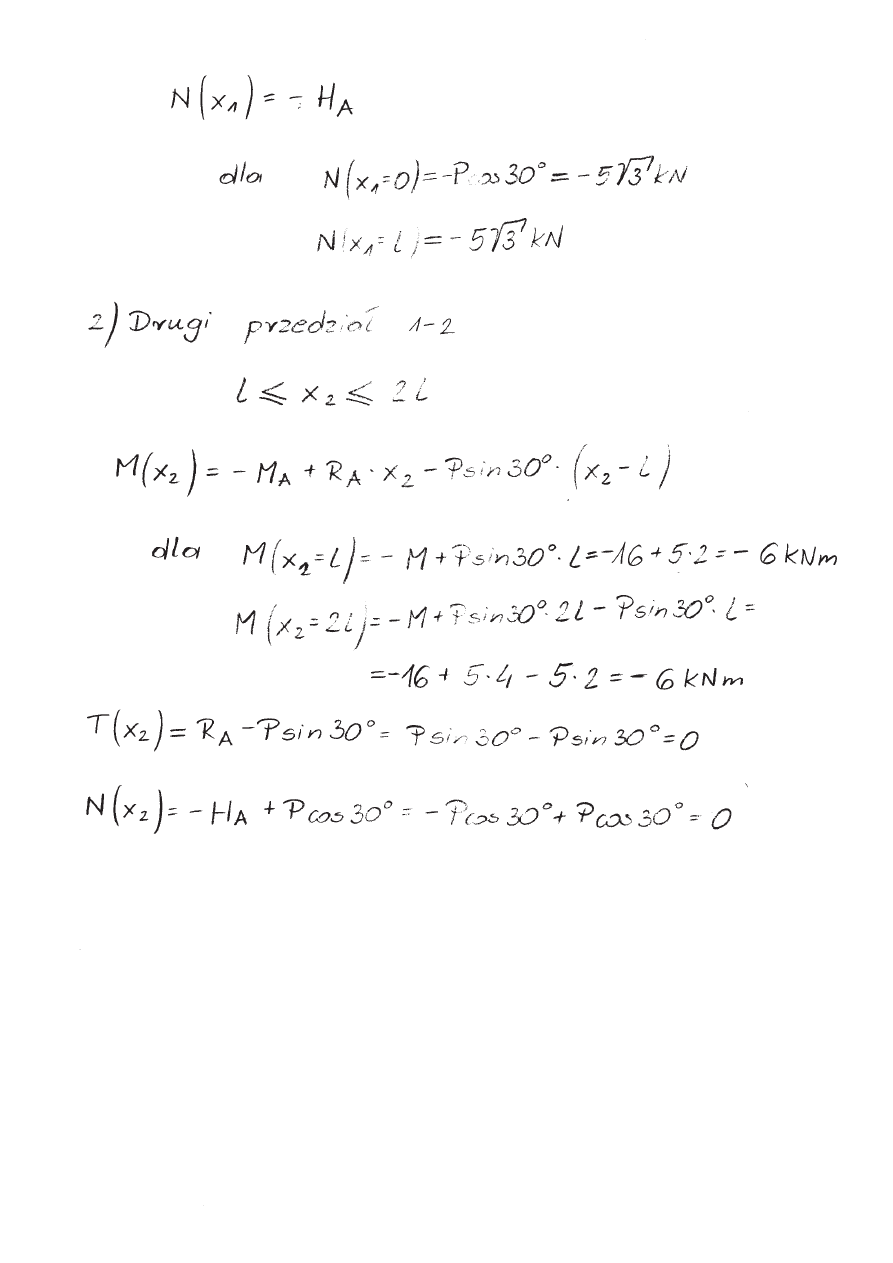 N(x₁) = - H_A
dla N(x₁=0)=-P cos 30° = - 5√3 kN
N(x₁= l)= - 5√3 kN
2) Drugi przedział 1-2
l ≤ x₂ ≤ 2l
M(x₂) = - M_A + R_A · x₂ - Psin 30° · (x₂ - l)
dla M(x₂=l)= - M + Psin30° · l=-16 + 5·2 = - 6 kNm
M(x₂=2l)= - M + Psin30° · 2l - Psin 30° · l =
=-16 + 5·4 - 5·2 = - 6 kNm
T(x₂) = R_A - Psin 30° = Psin 30° - Psin 30° = 0
N(x₂)= - H_A + Pcos 30° = - Pcos 30° + Pcos 30° = 0